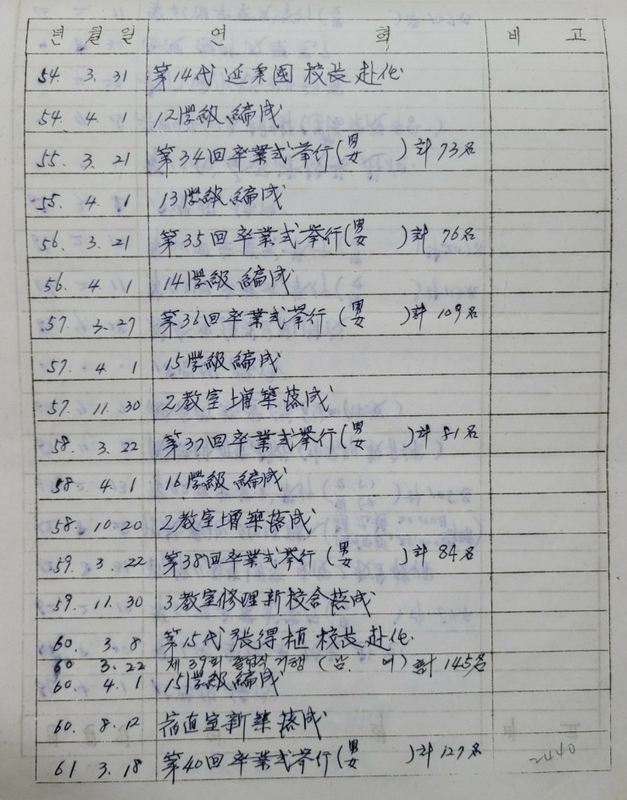 년 월 일 연 혁 비 고
54. 3. 31 第14代 延秉國 校長 赴任
54. 4. 1 12學級 編成
55. 3. 21 第34回 卒業式 举行 (男 女 ) 計 73名
55. 4. 1 13學級 編成
56. 3. 21 第35回 卒業式 举行 (男 女 ) 計 76名
56. 4. 1 14學級 編成
57. 3. 27 第36回 卒業式 举行 (男 女 ) 計 109名
57. 4. 1 15學級 編成
57. 11. 30 2教室 增築 落成
58. 3. 22 第37回 卒業式 举行 (男 女 ) 計 81名
58. 4. 1 16學級 編成
58. 10. 20 2教室 增築 落成
59. 3. 22 第38回 卒業式 举行 (男 女 ) 計 84名
59. 11. 30 3教室 修理 新校舍 落成
60. 3. 8 第15代 張得植 校長 赴任
60 3. 22 제 39회 졸업식 거행 (남. 여) 計 145名
60. 4. 1 15學級 編成
60. 8. 12 宿直室 新築 落成
61 3. 18 第40回 卒業式 举行 (男 女 ) 計 127名
2440